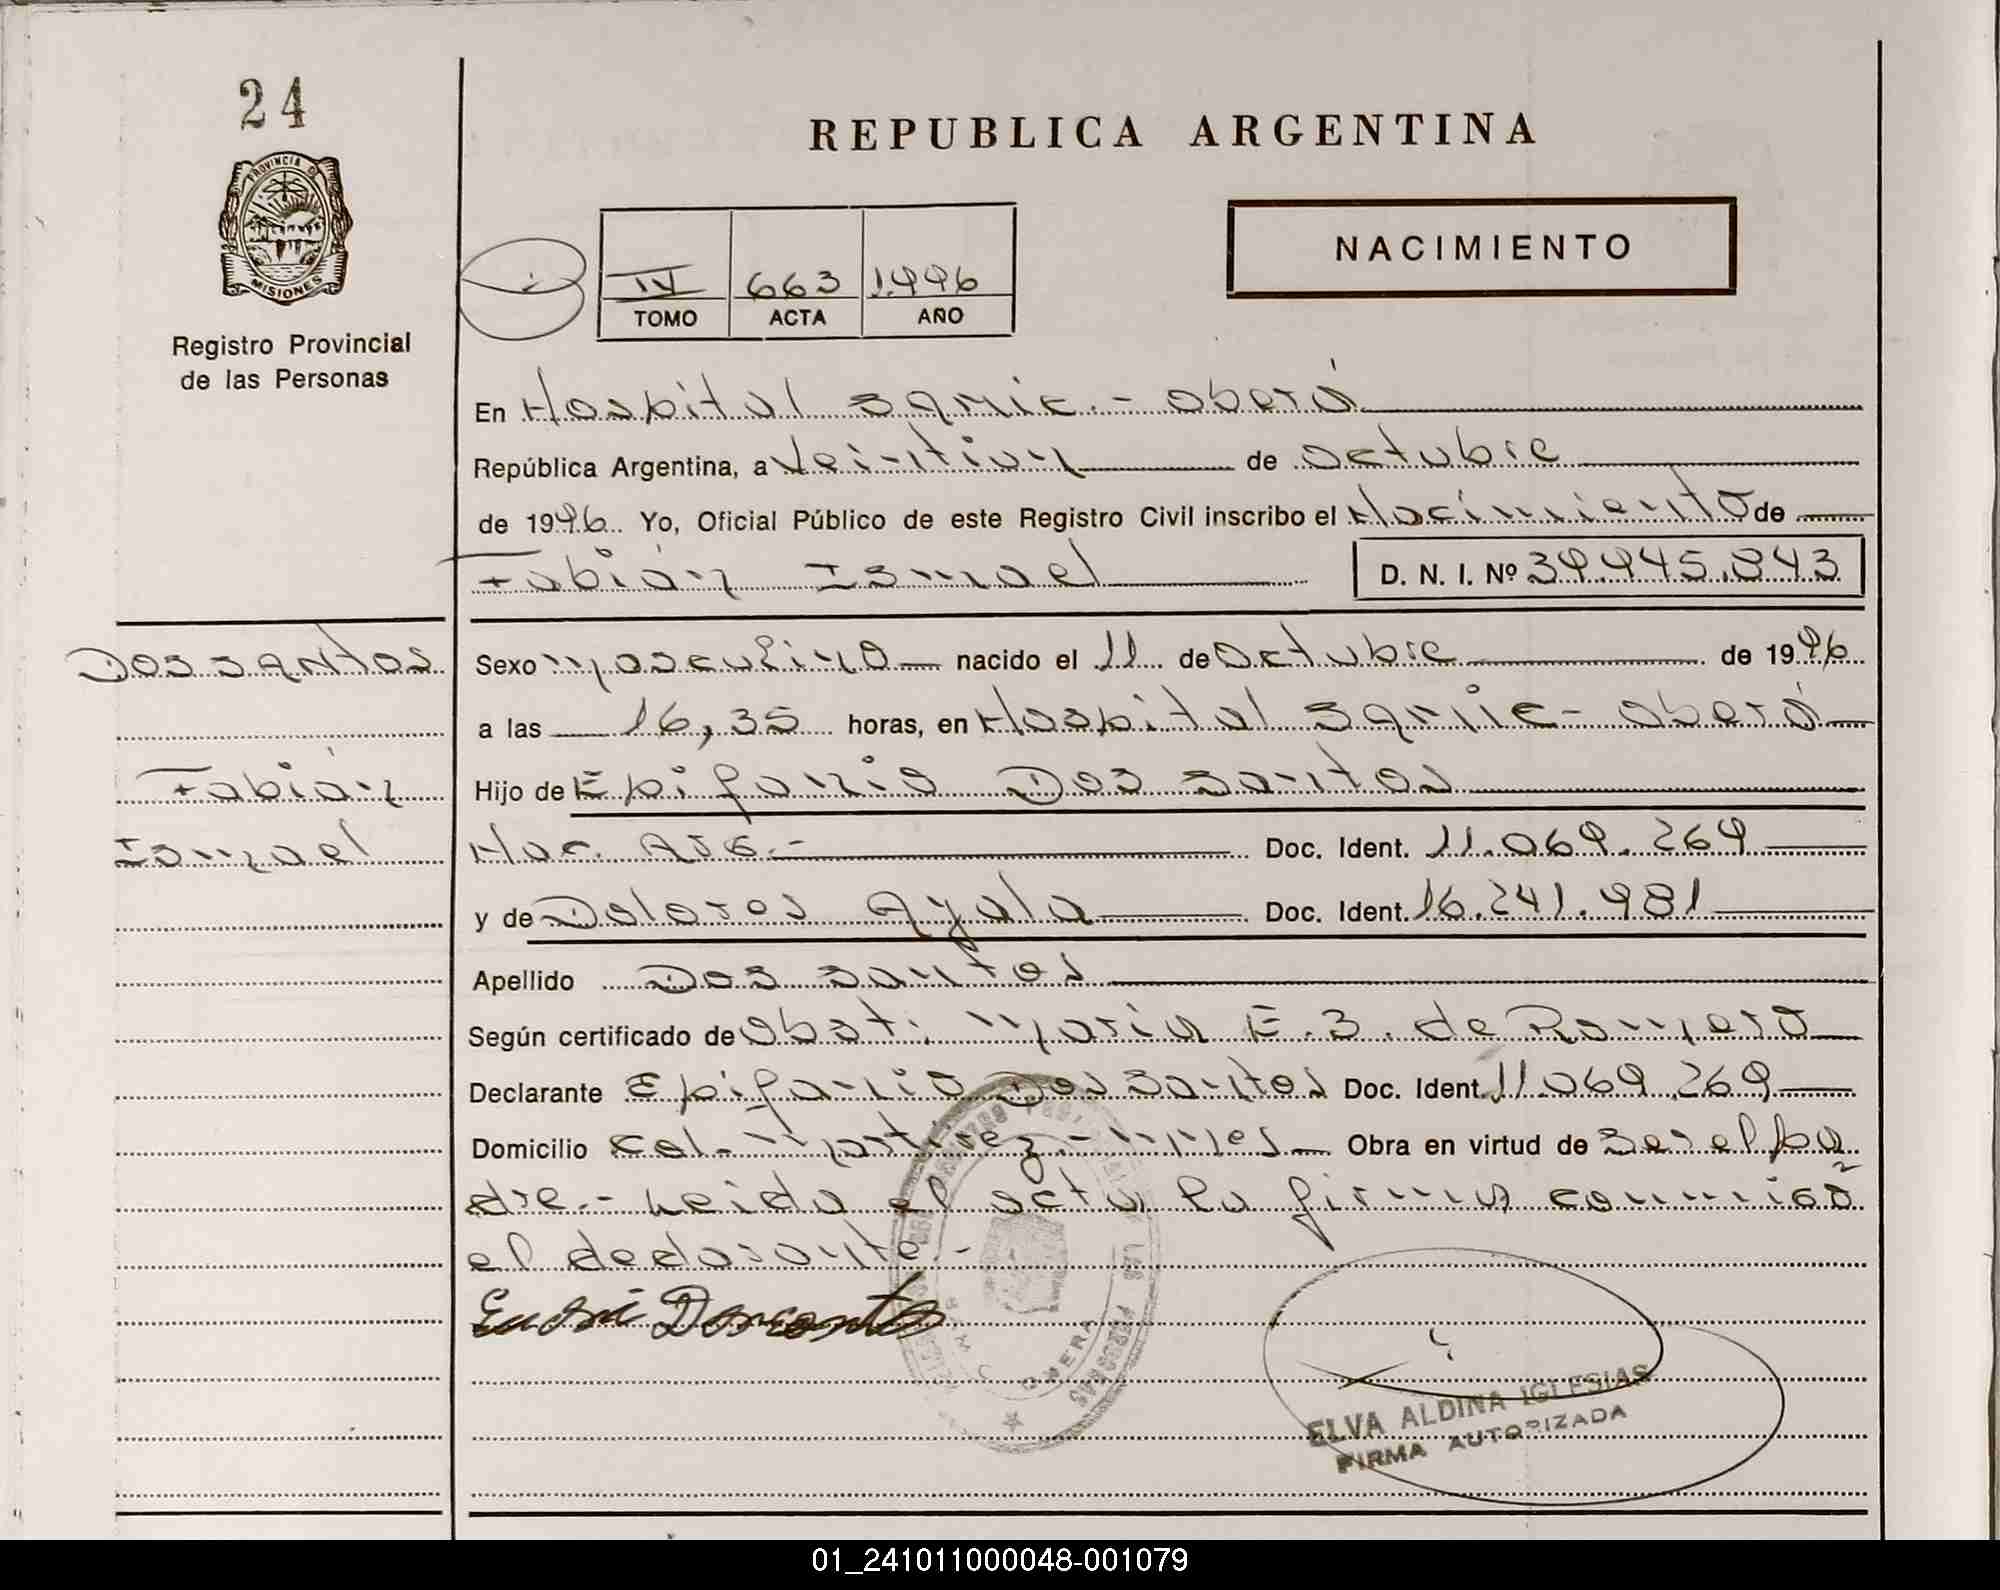 24
PROVINCIA DE
MISIONES
Registro Provincial
de las Personas
REPUBLICA ARGENTINA
NACIMIENTO
IV 663 1996
TOMO ACTA AÑO
En Hospital Samic.- Oberá
República Argentina, a Veintiun de Octubre
de 1996.. Yo, Oficial Público de este Registro Civil inscribo el Nacimiento de
Fabián Ismael D. N. I. Nº 39.945.843
Dos santos
Fabián
Ismael
Sexo masculino nacido el 11 de Octubre de 1996
a las 16,35 horas, en Hospital Samic - Oberá
Hijo de Epifanio Dos santos
Nac. Arg.- Doc. Ident. 11.069.269
y de Dolores Ayala Doc. Ident. 16.241.981
Apellido Dos santos
Según certificado de Obst. María E. B. de Romero
Declarante Epifanio Dos Santos Doc. Ident. 11.069.269
Domicilio Col. Martirez - Mnes Obra en virtud de Ser el pa
dre.- Leida el acta la firma conmigo
el declarante.-
Dossantos
OBERA
ELVA ALDINA IGLESIAS
FIRMA AUTORIZADA
01_241011000048-001079